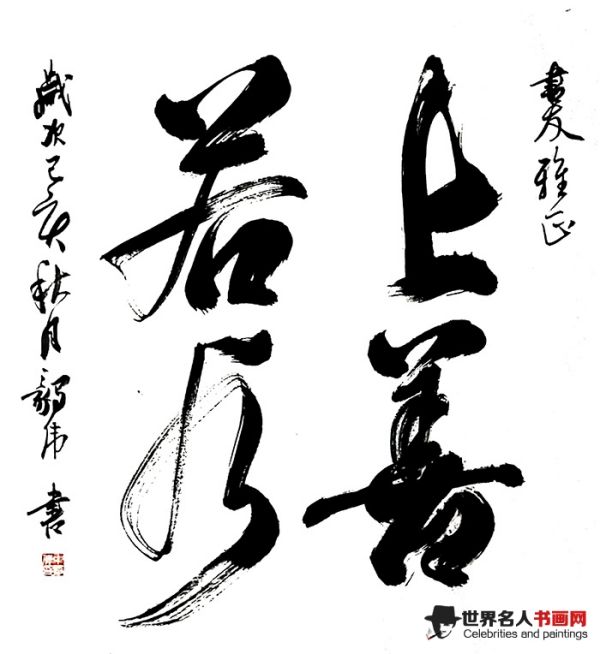 书友雅正
上善
若水
岁次己亥秋月毅伟书
世界名人书画网
Celebrities and paintings